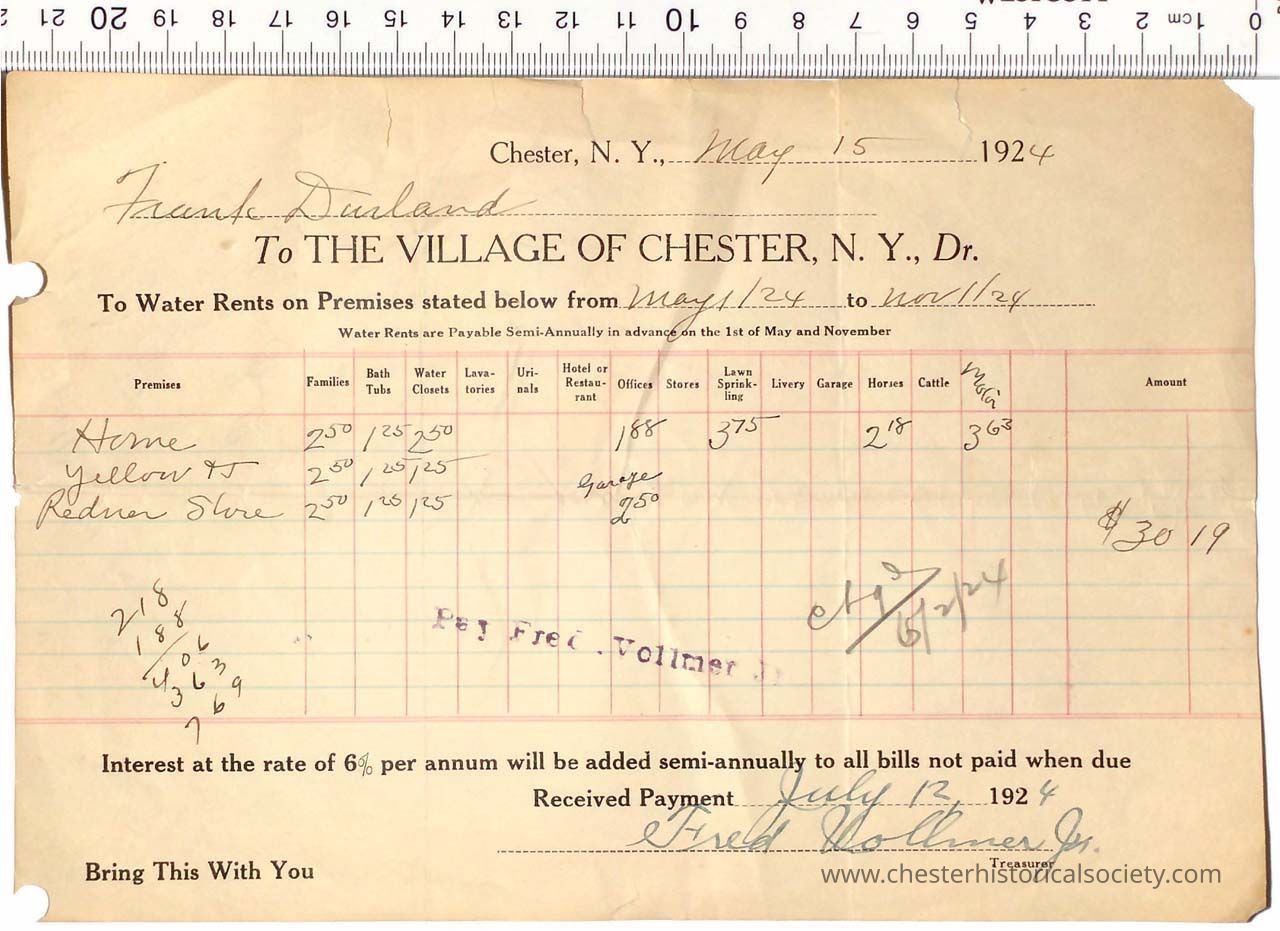 21 20 19 18 17 16 15 14 13 12 11 10 9 8 7 6 5 4 3 2 1cm 0
Chester, N. Y., May 15 1924
Frank Durland
To THE VILLAGE OF CHESTER, N. Y., Dr.
To Water Rents on Premises stated below from May 1/24 to Nov 1/24
Water Rents are Payable Semi-Annually in advance on the 1st of May and November
Premises Families Bath Tubs Water Closets Lava-tories Uri-nals Hotel or Restau-rant Offices Stores Lawn Sprink-ling Livery Garage Horses Cattle Motor Amount
Home 2 50 1 25 2 50 1 88 3 75 2 18 3 63
Yellow 2 50 1 25 1 25 Garage
Redner Store 2 50 1 25 1 25 2 50
$ 30 19
218
188
406
363
769
6/2/24
Pay Fred Vollmer Jr
Interest at the rate of 6% per annum will be added semi-annually to all bills not paid when due
Received Payment July 12, 1924
Fred Vollmer Jr.
Treasurer
Bring This With You
www.chesterhistoricalsociety.com